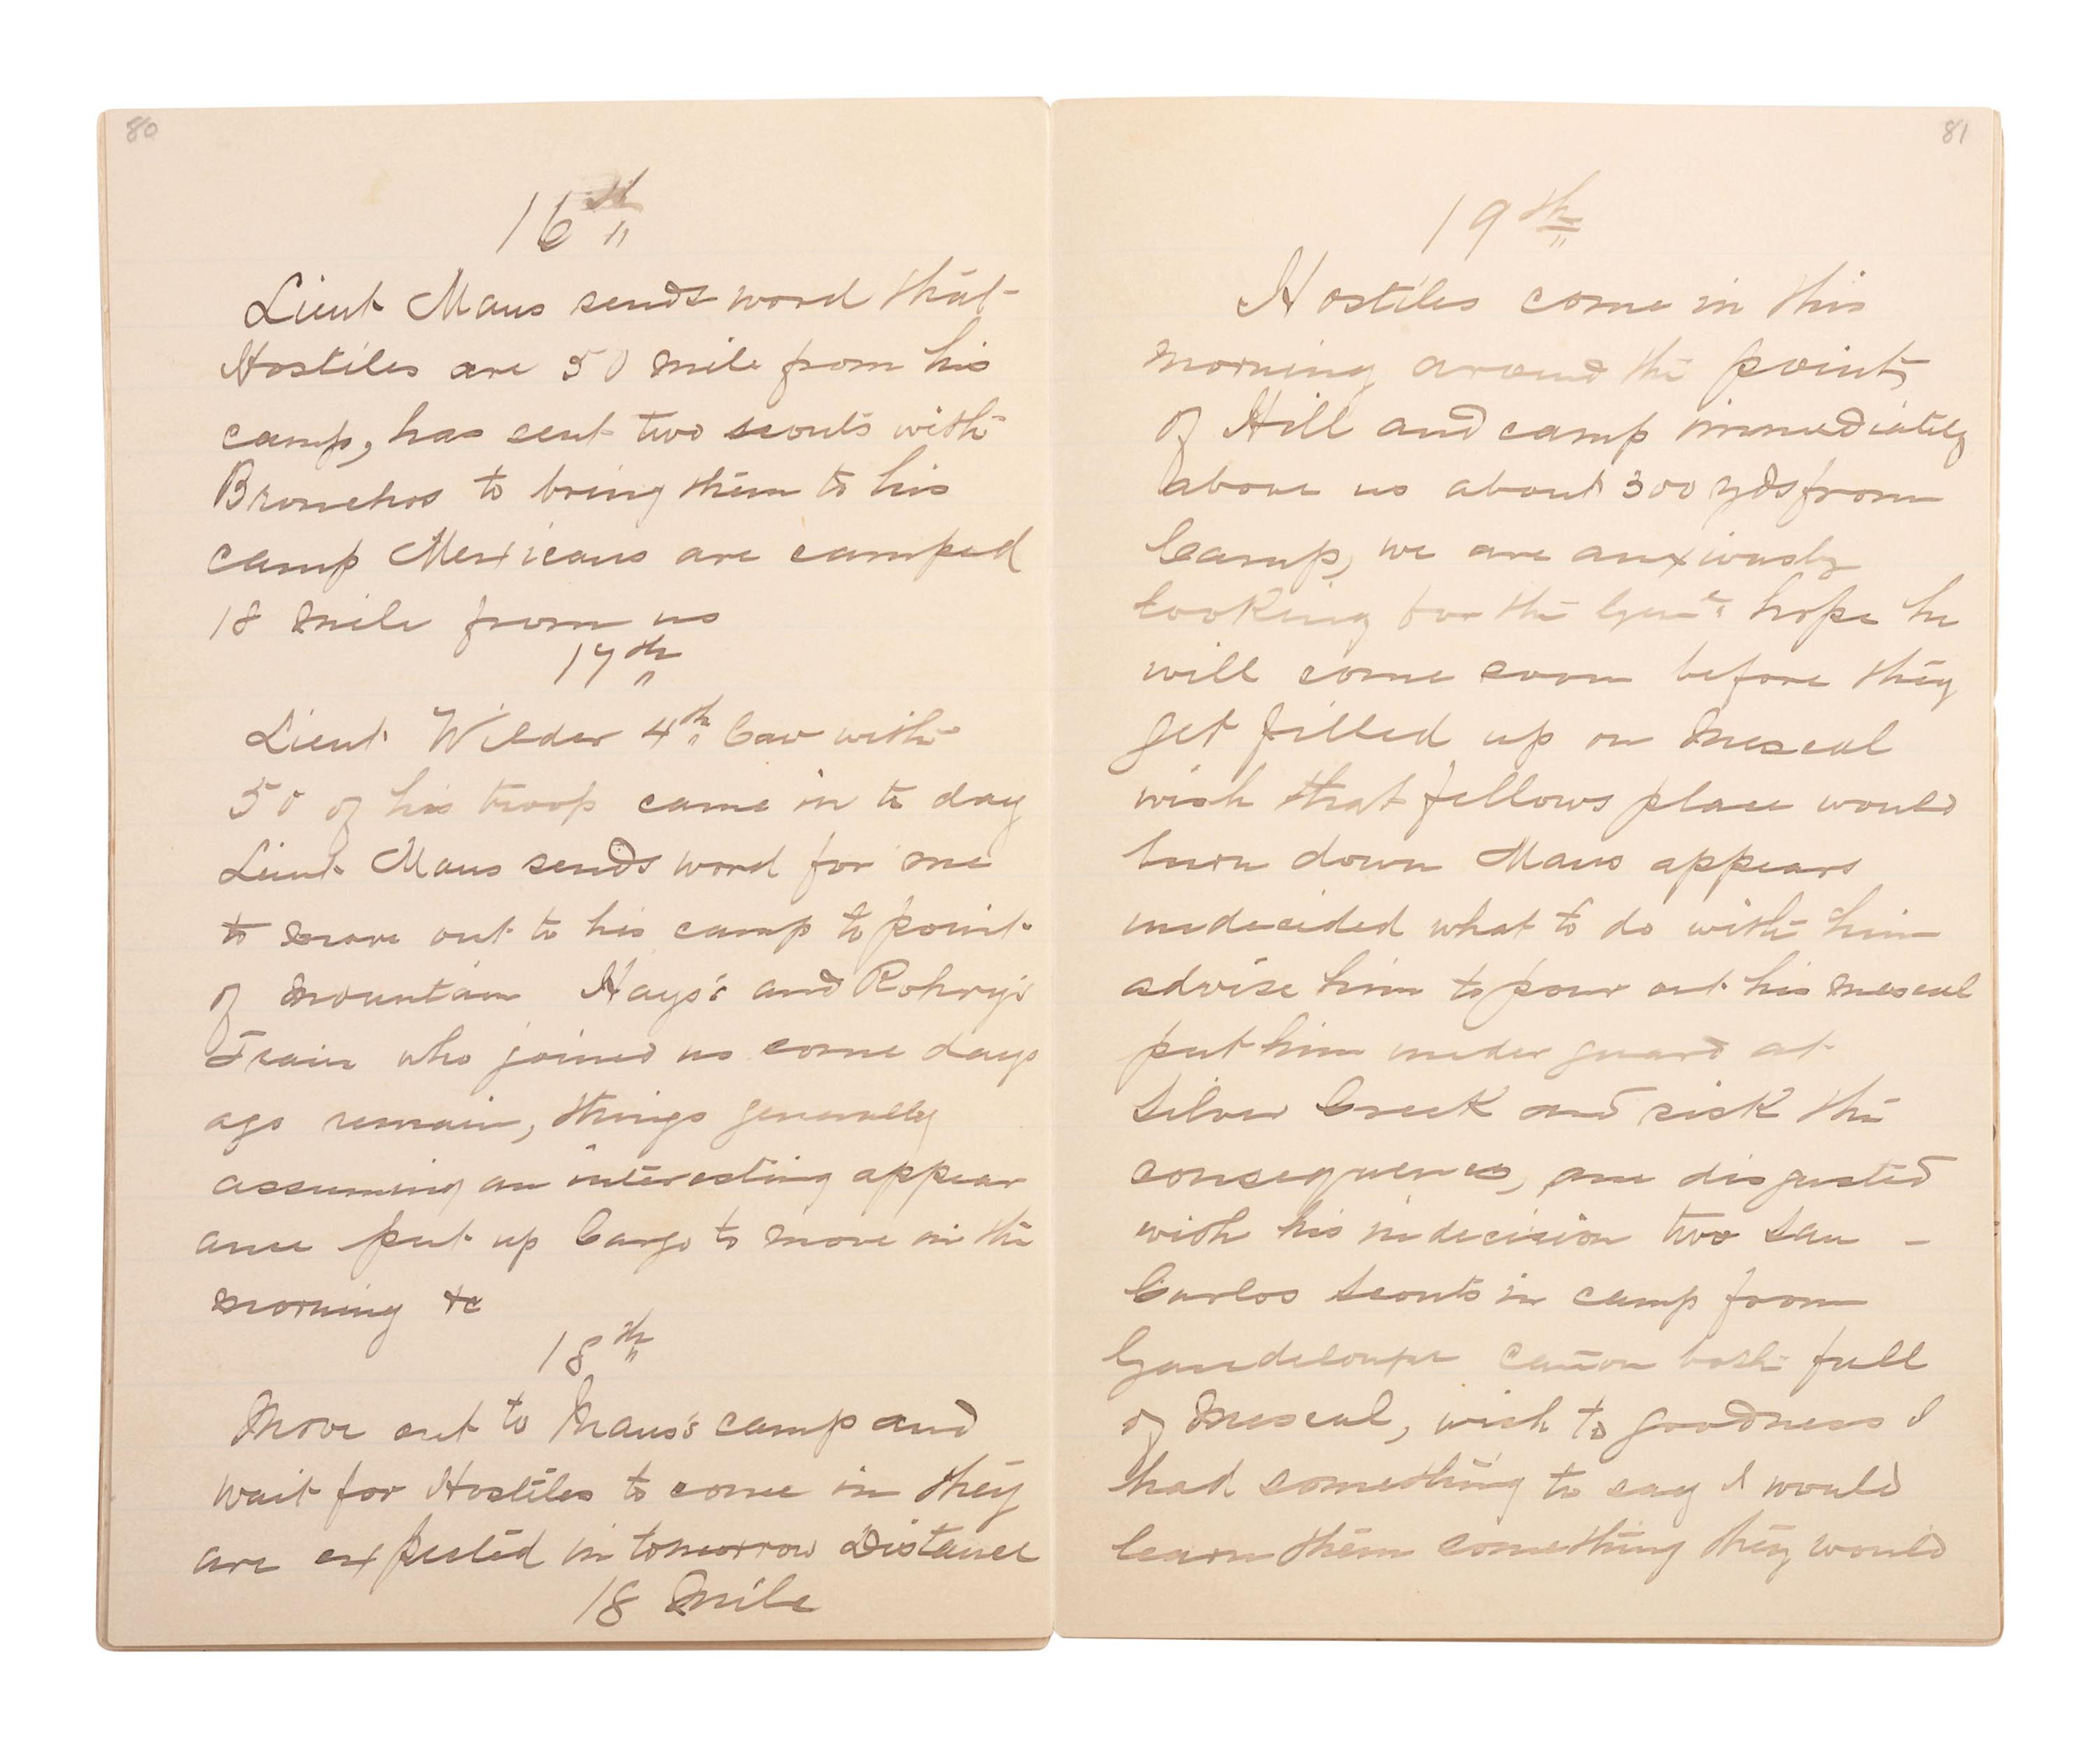 80
16th
Lieut Maus sends word that
Hostiles are 50 mile from his
camp, has sent two scouts with
Bronchos to bring them to his
camp Mexicans are camped
18 mile from us
17th
Lieut Wilder 4th Cav with
50 of his troop came in to day
Lieut Maus sends word for me
to move out to his camp to point
of mountain Hays's and
Train who joined us some days
ago remain, things generally
assuming an interesting appear
ance put up Cargo to move in the
morning &c
18th
Move out to Maus's camp and
wait for Hostiles to come in they
are expected in tomorrow Distance
18 Mile
81
19th
Hostiles come in this
morning around the point
of Hill and camp immediately
above us about 300 yds from
Camp, we are anxiously
looking for the Genl hope he
will come soon before they
get filled up on Mescal
wish that fellows place would
burn down Maus appears
undecided what to do with him
advise him to pour out his mescal
put him under guard at
Silver Creek and risk the
consequences, am disgusted
with his indecision two San -
Carlos Scouts in camp from
Gaudeloupe cañon both full
of Mescal, wish to goodness I
had something to say I would
learn them something they would